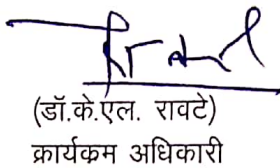 (डॉ.के.एल. रावटे)
क्रार्यकम अधिकारी